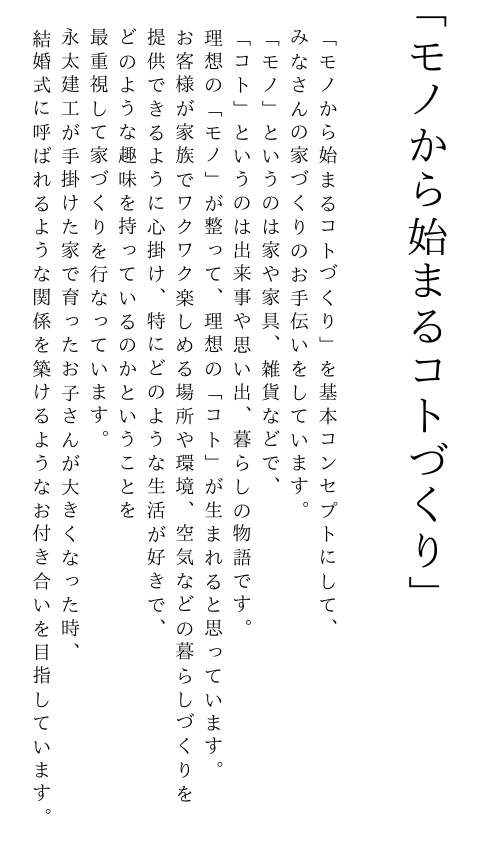 「モノから始まるコトづくり」
「モノから始まるコトづくり」を基本コンセプトにして、
みなさんの家づくりのお手伝いをしています。
「モノ」というのは家や家具、雑貨などで、
「コト」というのは出来事や思い出、暮らしの物語です。
理想の「モノ」が整って、理想の「コト」が生まれると思っています。
お客様が家族でワクワク楽しめる場所や環境、空気などの暮らしづくりを
提供できるように心掛け、特にどのような生活が好きで、
どのような趣味を持っているのかということを
最重視して家づくりを行なっています。
永太建工が手掛けた家で育ったお子さんが大きくなった時、
結婚式に呼ばれるような関係を築けるようなお付き合いを目指しています。